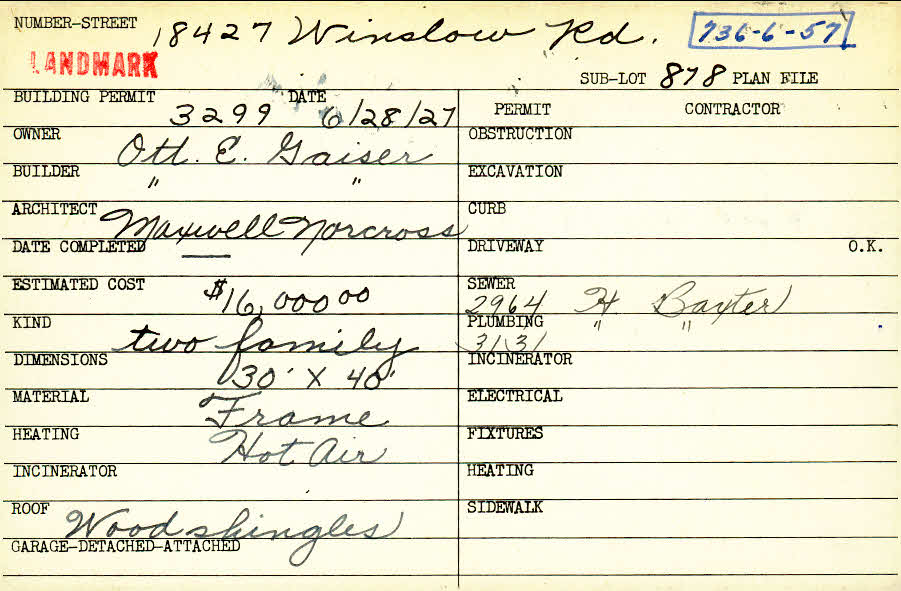 NUMBER-STREET 18427 Winslow Rd. 736-6-57
LANDMARK
SUB-LOT 878 PLAN FILE
BUILDING PERMIT 3299 DATE 6/28/27
PERMIT CONTRACTOR
OWNER Ott. E. Gaiser
OBSTRUCTION
BUILDER " "
EXCAVATION
ARCHITECT Maxwell Norcross
CURB
DATE COMPLETED —
DRIVEWAY O.K.
ESTIMATED COST $16,000 00
SEWER 2964 H. Baxter
KIND two family
PLUMBING 3131 " "
DIMENSIONS 30' X 40'
INCINERATOR
MATERIAL Frame
ELECTRICAL
HEATING Hot Air
FIXTURES
INCINERATOR
HEATING
ROOF Wood shingles
SIDEWALK
GARAGE-DETACHED-ATTACHED